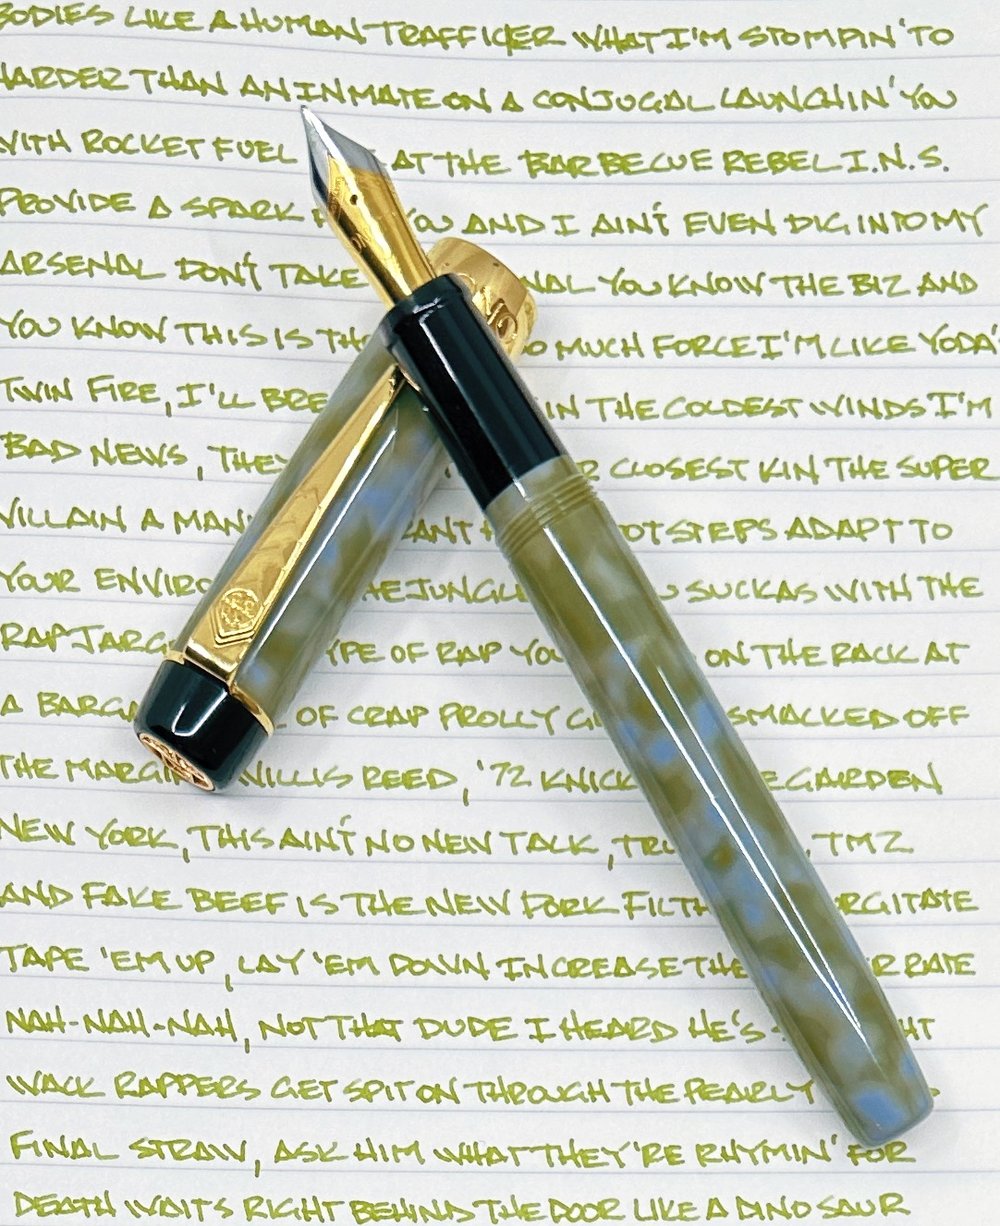 BODIES LIKE A HUMAN TRAFFICKER WHAT I'M STOMPIN' TO
HARDER THAN AN INMATE ON A CONJUGAL LAUNCHIN' YOU
WITH ROCKET FUEL AT THE BARBECUE REBEL I.N.S.
PROVIDE A SPARK YOU AND I AIN'T EVEN DIG INTO MY
ARSENAL DON'T TAKE YOU KNOW THE BIZ AND
YOU KNOW THIS IS MUCH FORCE I'M LIKE YODA'S
TWIN FIRE, I'LL IN THE COLDEST WINDS I'M
BAD NEWS, CLOSEST KIN THE SUPER
VILLAIN A ADAPT TO
YOUR SUCKAS WITH THE
RAP OF RAP ON THE RACK AT
A OF CRAP PROLLY SMACKED OFF
THE WILLIS REED, '72 GARDEN
NEW YORK, THIS AIN'T NO NEW TALK, TMZ
AND FAKE BEEF IS THE NEW PORK
TAPE 'EM UP, LAY 'EM DOWN INCREASE THE RATE
NAH-NAH-NAH, NOT THAT DUDE I HEARD HE'S
WACK RAPPERS GET SPIT ON THROUGH THE PEARLY
FINAL STRAW, ASK HIM WHAT THEY'RE RHYMIN' FOR
DEATH WAITS RIGHT BEHIND THE DOOR LIKE A DINOSAUR